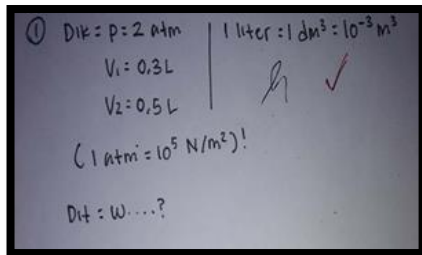 ① Dik = p = 2 atm
V₁ = 0,3 L
V₂ = 0,5 L
1 liter = 1 dm³ = 10⁻³ m³
(1 atm = 10⁵ N/m²)!
Dit = W....?